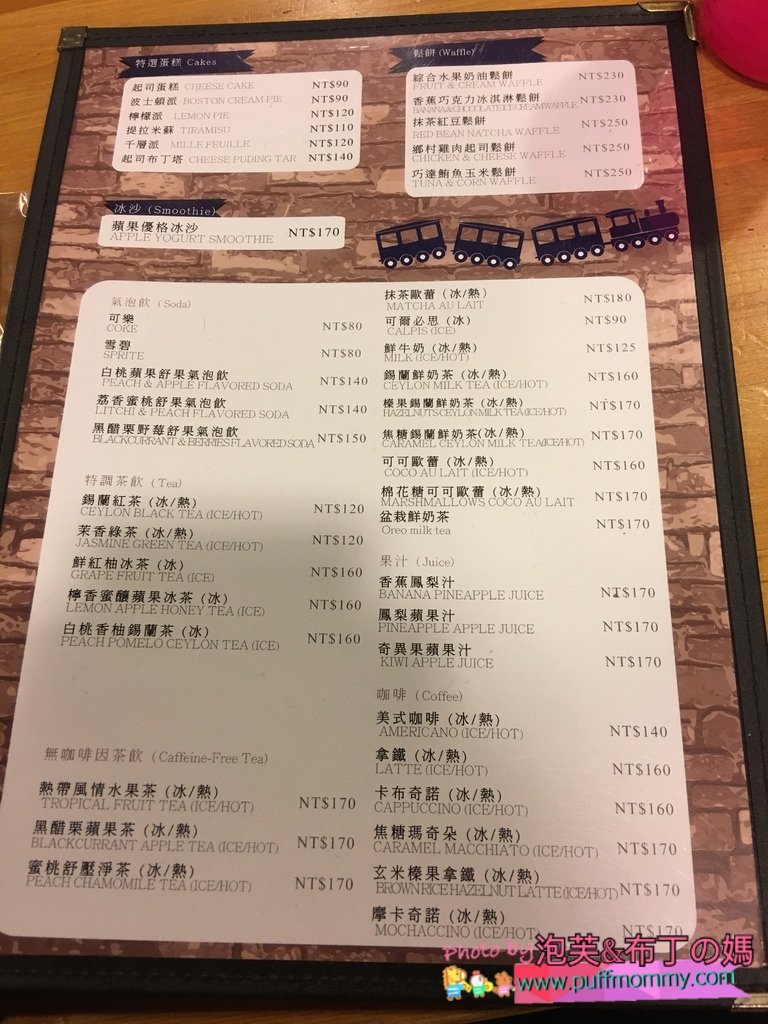 特選蛋糕 Cakes
起司蛋糕 CHEESE CAKE NT$90
波士頓派 BOSTON CREAM PIE NT$90
檸檬派 LEMON PIE NT$120
提拉米蘇 TIRAMISU NT$110
千層派 MILLE FEUILLE NT$120
起司布丁塔 CHEESE PUDING TAR NT$140
鬆餅 (Waffle)
綜合水果奶油鬆餅 NT$230
FRUIT & CREAM WAFFLE
香蕉巧克力冰淇淋鬆餅 NT$230
BANANA & CHOCOLATE ICE CREAM WAFFLE
抹茶紅豆鬆餅 NT$250
RED BEAN NATCHA WAFFLE
鄉村雞肉起司鬆餅 NT$250
CHICKEN & CHEESE WAFFLE
巧達鮪魚玉米鬆餅 NT$250
TUNA & CORN WAFFLE
冰沙 (Smoothie)
蘋果優格冰沙 NT$170
APPLE YOGURT SMOOTHIE
氣泡飲 (Soda)
可樂 NT$80
COKE
雪碧 NT$80
SPRITE
白桃蘋果舒果氣泡飲 NT$140
PEACH & APPLE FLAVORED SODA
荔香蜜桃舒果氣泡飲 NT$140
LITCHI & PEACH FLAVORED SODA
黑醋栗野莓舒果氣泡飲 NT$150
BLACKCURRANT & BERRIES FLAVORED SODA
特調茶飲 (Tea)
錫蘭紅茶 (冰/熱) NT$120
CEYLON BLACK TEA (ICE/HOT)
茉香綠茶 (冰/熱) NT$120
JASMINE GREEN TEA (ICE/HOT)
鮮紅柚冰茶 (冰) NT$160
GRAPE FRUIT TEA (ICE)
檸香蜜釀蘋果冰茶 (冰) NT$160
LEMON APPLE HONEY TEA (ICE)
白桃香柚錫蘭茶 (冰) NT$160
PEACH POMELO CEYLON TEA (ICE)
無咖啡因茶飲 (Caffeine-Free Tea)
熱帶風情水果茶 (冰/熱) NT$170
TROPICAL FRUIT TEA (ICE/HOT)
黑醋栗蘋果茶 (冰/熱) NT$170
BLACKCURRANT APPLE TEA (ICE/HOT)
蜜桃舒壓淨茶 (冰/熱) NT$170
PEACH CHAMOMILE TEA (ICE/HOT)
抹茶歐蕾 (冰/熱) NT$180
MATCHA AU LAIT
可爾必思 (冰) NT$90
CALPIS (ICE)
鮮牛奶 (冰/熱) NT$125
MILK (ICE/HOT)
錫蘭鮮奶茶 (冰/熱) NT$160
CEYLON MILK TEA (ICE/HOT)
榛果錫蘭鮮奶茶 (冰/熱) NT$170
HAZELNUTS CEYLON MILK TEA (ICE/HOT)
焦糖錫蘭鮮奶茶(冰/熱) NT$170
CARAMEL CEYLON MILK TEA(ICE/HOT)
可可歐蕾 (冰/熱) NT$160
COCO AU LAIT (ICE/HOT)
棉花糖可可歐蕾 (冰/熱) NT$170
MARSHMALLOWS COCO AU LAIT
盆栽鮮奶茶 NT$170
Oreo milk tea
果汁 (Juice)
香蕉鳳梨汁 NT$170
BANANA PINEAPPLE JUICE
鳳梨蘋果汁 NT$170
PINEAPPLE APPLE JUICE
奇異果蘋果汁 NT$170
KIWI APPLE JUICE
咖啡 (Coffee)
美式咖啡 (冰/熱) NT$140
AMERICANO (ICE/HOT)
拿鐵 (冰/熱) NT$160
LATTE (ICE/HOT)
卡布奇諾 (冰/熱) NT$160
CAPPUCCINO (ICE/HOT)
焦糖瑪奇朵 (冰/熱) NT$170
CARAMEL MACCHIATO (ICE/HOT)
玄米榛果拿鐵 (冰/熱) NT$170
BROWN RICE HAZELNUT LATTE (ICE/HOT)
摩卡奇諾 (冰/熱) NT$170
MOCHACCINO (ICE/HOT)
Photo By 泡芙&布丁の媽
www.puffmommy.com